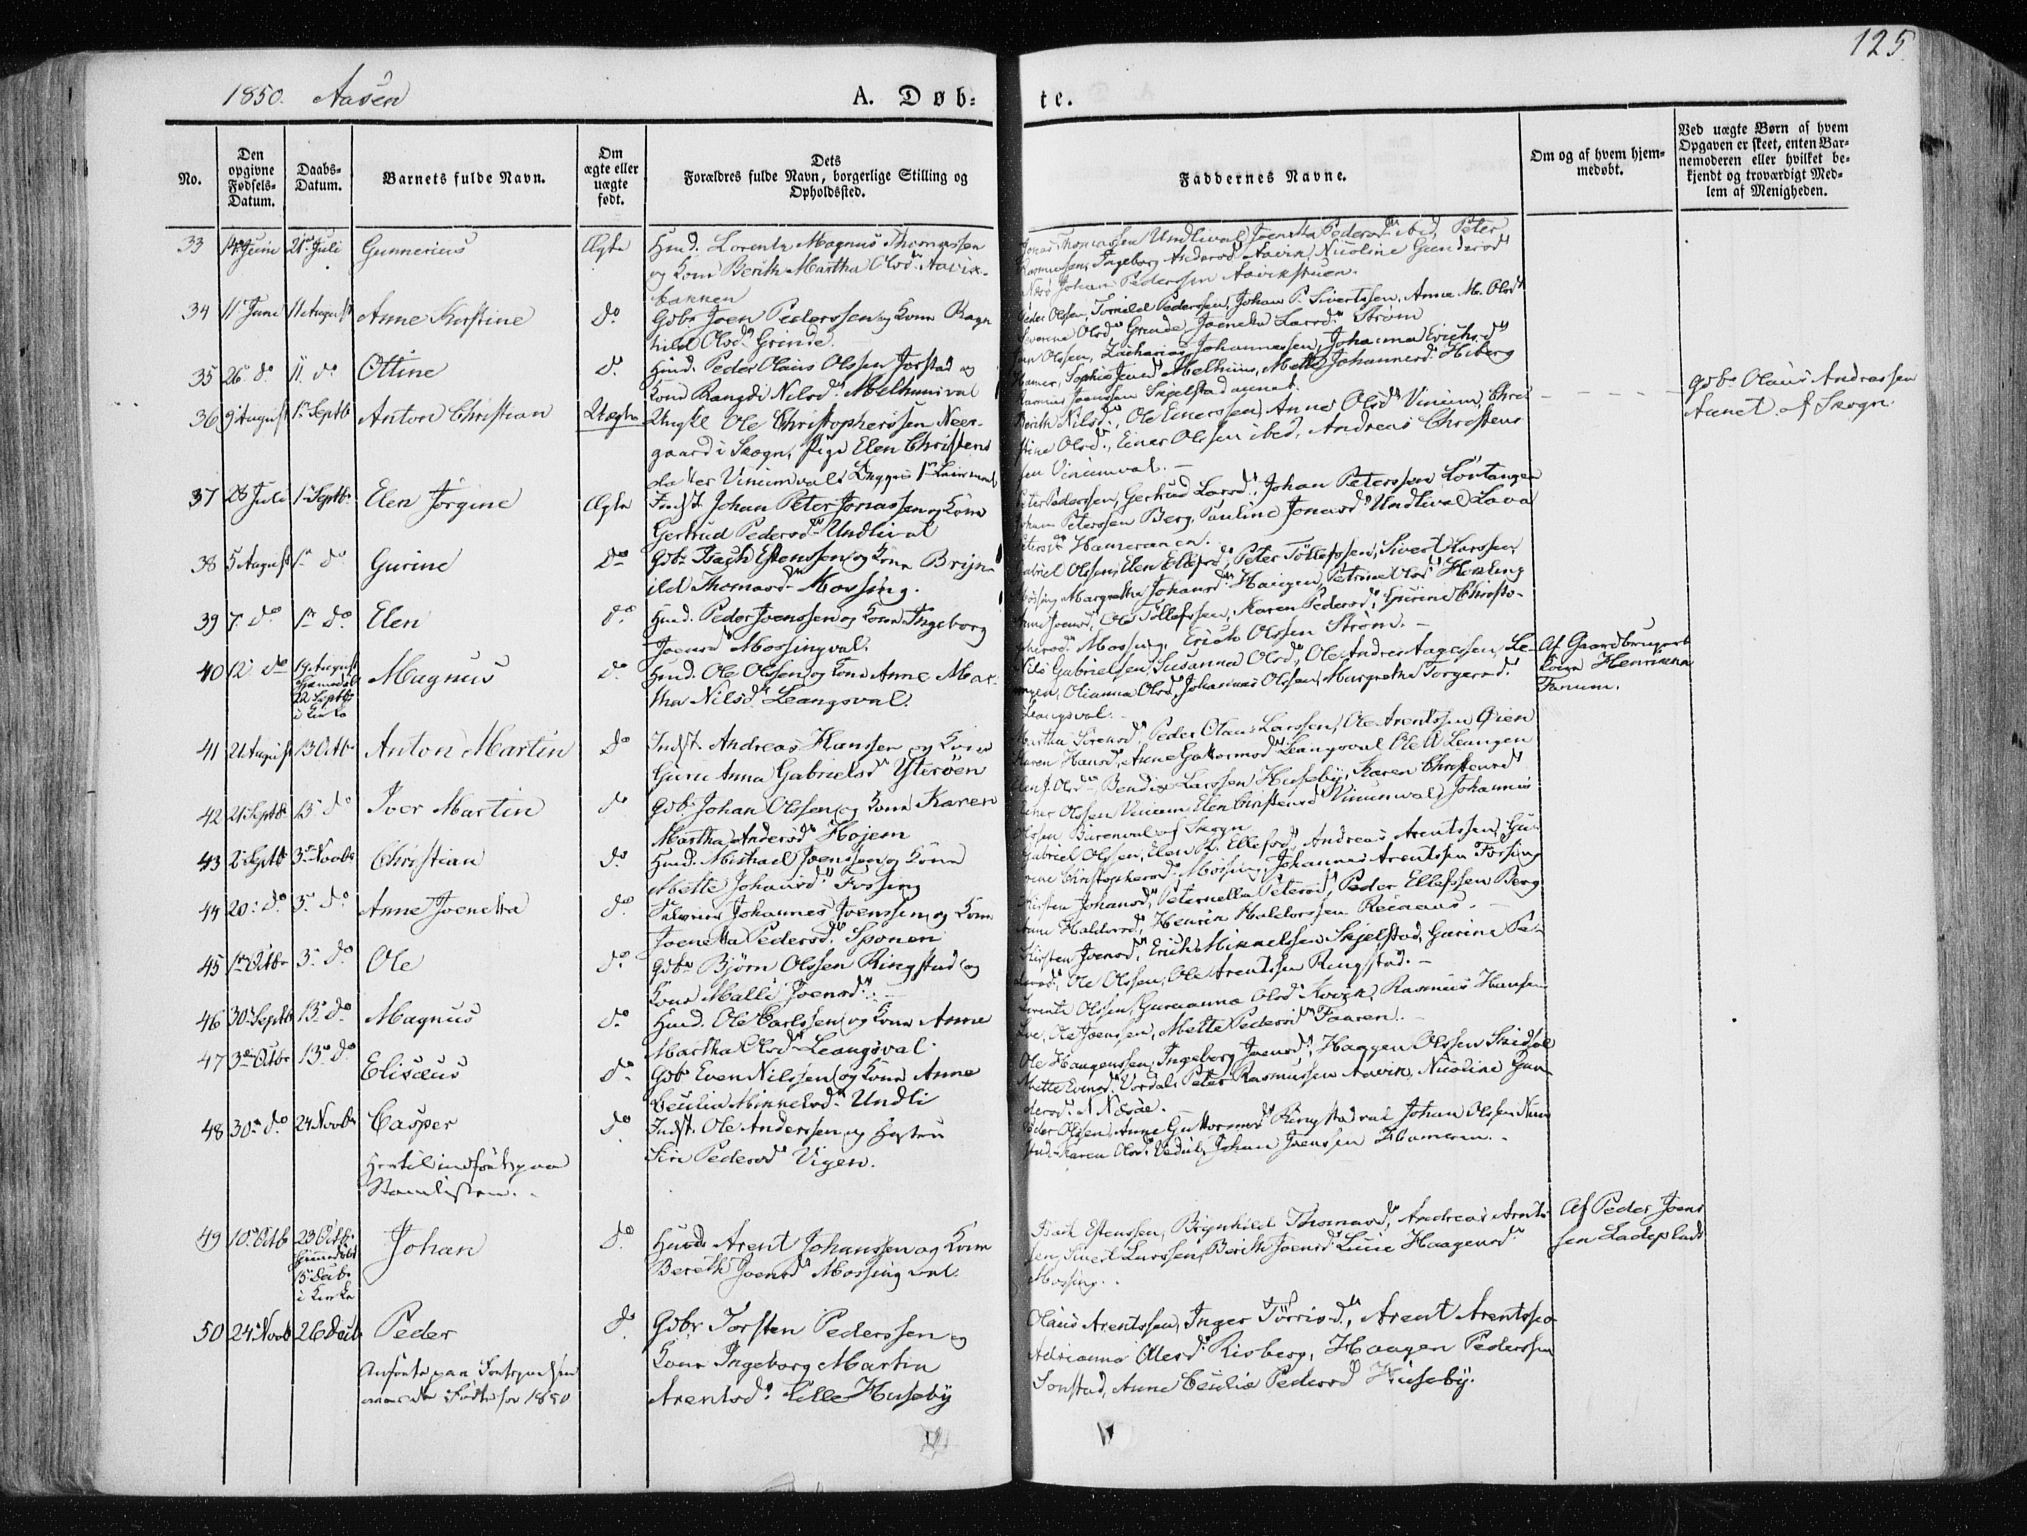 125.
1850. Aasen
A. Døb-
te.
No.
Den opgivne Fødsels-Datum.
Daabs-Datum.
Barnets fulde Navn.
Om ægte eller uægte født.
Dets Forældres fulde Navn, borgerlige Stilling og Opholdssted.
Faddernes Navne.
Om og af hvem hjem-medøbt.
Ved uægte Børn af hvem Opgaven er skeet, enten Bar-nemoderen eller hvilket be-kjendt og troværdigt Med-lem af Menigheden.
33 Juni 21 Juli Gunnerius Ægte Huusm. Lorents Magnus Thomassen
og Kone Berith Martha Olsd. Aavik-
bakken
Jonas Thomassen Undlival, Joenetta Pedersd. ibid, Peter
Rasmussen, Ingeborg Andersd. Aavik, Nicoline Gundersd.
Johan Pedersen Aavikstuen.
34 11 Juni 11 August Anne Kirstine do Gdbr Joen Pederssen og Kone Ragn
hild Olsd. Grinde.
Peder Olssen, Tomeld Pederssen, Johan P. Sivertssen, Anne M. Olsd.
Severine Olsd. Grinde, Joenetta Larsd. Strøm
35 26 do 11 do Ottine do Huusm. Peder Olaus Olssen Forstad og
Kone Rangdi Nilsd. Melhuusval
Olssen, Zacharias Johannessen, Johanna Erichsd.
Hamer, Sophie Melhuus, Mette Johannesd. Hiberg
Rasmus Joenssen Skjelstad annet.
36 9 August 1 Septb Anton Christian Uægte Ungkl Ole Christopherssen Neer-
gaard i Skogn, Pige Elen Christens
datter Vinumval
Berith Nilsd., Ole Einerssen, Anne Olsd. Vinum, Chri
stine Olsd., Einer Olssen ibid, Andreas Christens
sen Vinumval.
Gdbr Olaus Andreassen
Aunet af Skogn.
37 28 Juli 1 Septb Elen Jørgine Ægte Indst. Johan Peter Jonassen og Kone
Gertrud Pedersd. Undlival
Pederssen, Gertrud Larsd., Johan Peterssen Løvtangen
Johan Peterssen Berg, Pauline Jonasd. Undlival Lava
Petersd. Hameranen.
38 5 August 1 do Gurine do Gdbr Isach Estenssen og Kone Bryn
ild Thomasd. Mossing.
Gabriel Olssen, Elen Ellefsd., Peter Tollefssen, Sivert Larssen
Mossing, Margrethe Johansd. Haugen, Petrine Olsd. Hokling
39 7 do 1 do Elen do Huusm. Peder Joenssen og Kone Ingeborg
Joensd. Mossingval.
Anne Joensd., Ole Tollefssen, Karen Pedersd., Gurine Christo-
phersd. Mossing, Erich Olssen Strøm.
40 12 do 19 August hjemmedøbt
22 Septb
i Kirke Magnus do Huusm. Ole Olssen og Kone Anne Mar
tha Nilsd. Leangsval.
Nils Gabrielsen, Susanna Olsd., Ole Andreas Aagesen, Le-
angen, Olianna Olsd., Johannes Olssen, Margrethe Torgersd.
Leangsval.
Af Gaardbrugerk
Kone Henrikka
Farum.
41 21 August 13 Octb Anton Martin do Indst. Andreas Hanssen og Kone
Guru Anna Gabrielsd. Ytterøen
Martha Sørensd., Peder Olaus Larssen, Ole Arentssen Øien
Karen Hansd., Anne Guttormsd. Leangsval Ole Leangen
42 21 Septb 13 do Iver Martin do Gdbr Johan Olssen og Kone Karen
Martha Andersd. Hojem
Olsd., Bendix Larssen Husebÿ, Karen Christensd.
Einer Olssen Vinum Elen Christensd. Vinumval, Johannis
Olssen Birenval af Skogn
43 2 Septb 3 Novb Christian do Huusm. Michael Joenssen og Kone
Mette Johansd. Fossing
Gabriel Olssen, Elen M. Ellefsd., Andreas Arentssen, Gu-
rine Christophersd. Mossing, Johannes Arentssen Fossing
44 20 do 3 do Anne Joenetta do Johannes Joenssen og Kone
Joenetta Pedersd. Sponen
Kirsten Johansd., Peternella Petersd., Peder Ellefssen Berg
Anne Haldorsd., Henrik Haldorssen Reinaas.
45 1 Octbr 3 do Ole do Gdbr Bjørn Olssen Ringstad og
Kone Malli Joensd.
Kirsten Joensd., Erich Mikkelssen Skjelstad, Gurine Pe-
dersd., Ole Olssen, Ole Arentssen Ringstad.
46 30 Septb 13 do Magnus do Huusm. Ole Carlssen og Kone Anne
Martha Olsd. Leangsval.
Lorents Olssen, Guruanna Olsd. Kvik, Rasmus Hansen
Lie, Ole Joenssen, Mette Pedersd. Faaren.
47 3 Octbr 13 do Elisæus do Gdbr Even Nilssen og Kone Anne
Cecilia Mikkelsd. Undli
Ole Haagenssen, Ingeborg Joensd., Haagen Olssen Skidsol
Mette Evensd. Vordal, Peter Rasmussen Aavik, Nicoline Gun-
dersd. N Næsse.
48 30 do 24 Novbr Casper
Hertil indført paa
Navnlisten. do Indst. Ole Anderssen og Hustru
Siri Pedersd. Vigen.
Peder Olssen, Anne Guttormsd. Ringstadval Johan Olssen Nun
stad, Karen Olsd. Vedul, Johan Joenssen Hameren.
49 10 Octb 23 Octb
hjemmedøbt
15 Decb
i Kirke Johan do Huusm. Arent Johanssen og Kone
Bereth Joensd. Mossingval.
Isach Estenssen, Brynhild Thomasd., Andreas Arents
sen, Sivert Larssen, Berith Joensd. Lucie Haagensd.
Mossing.
Af Peder Joens
sen Ladeplads
50 24 Novb 26 Decb Peder do Gdbr Torsten Pederssen og
Kone Ingeborg Martin
Arentsd. Lille Husebÿ
Anførte paa Fortegnelsen
over de Fødte for 1850
Olaus Arentssen, Inger Tørrisd., Arent Arentssen
Adrianna Olesd. Risberg, Haagen Pederssen
Lonstad, Anne Cecilie Pedersd. Husebÿ.